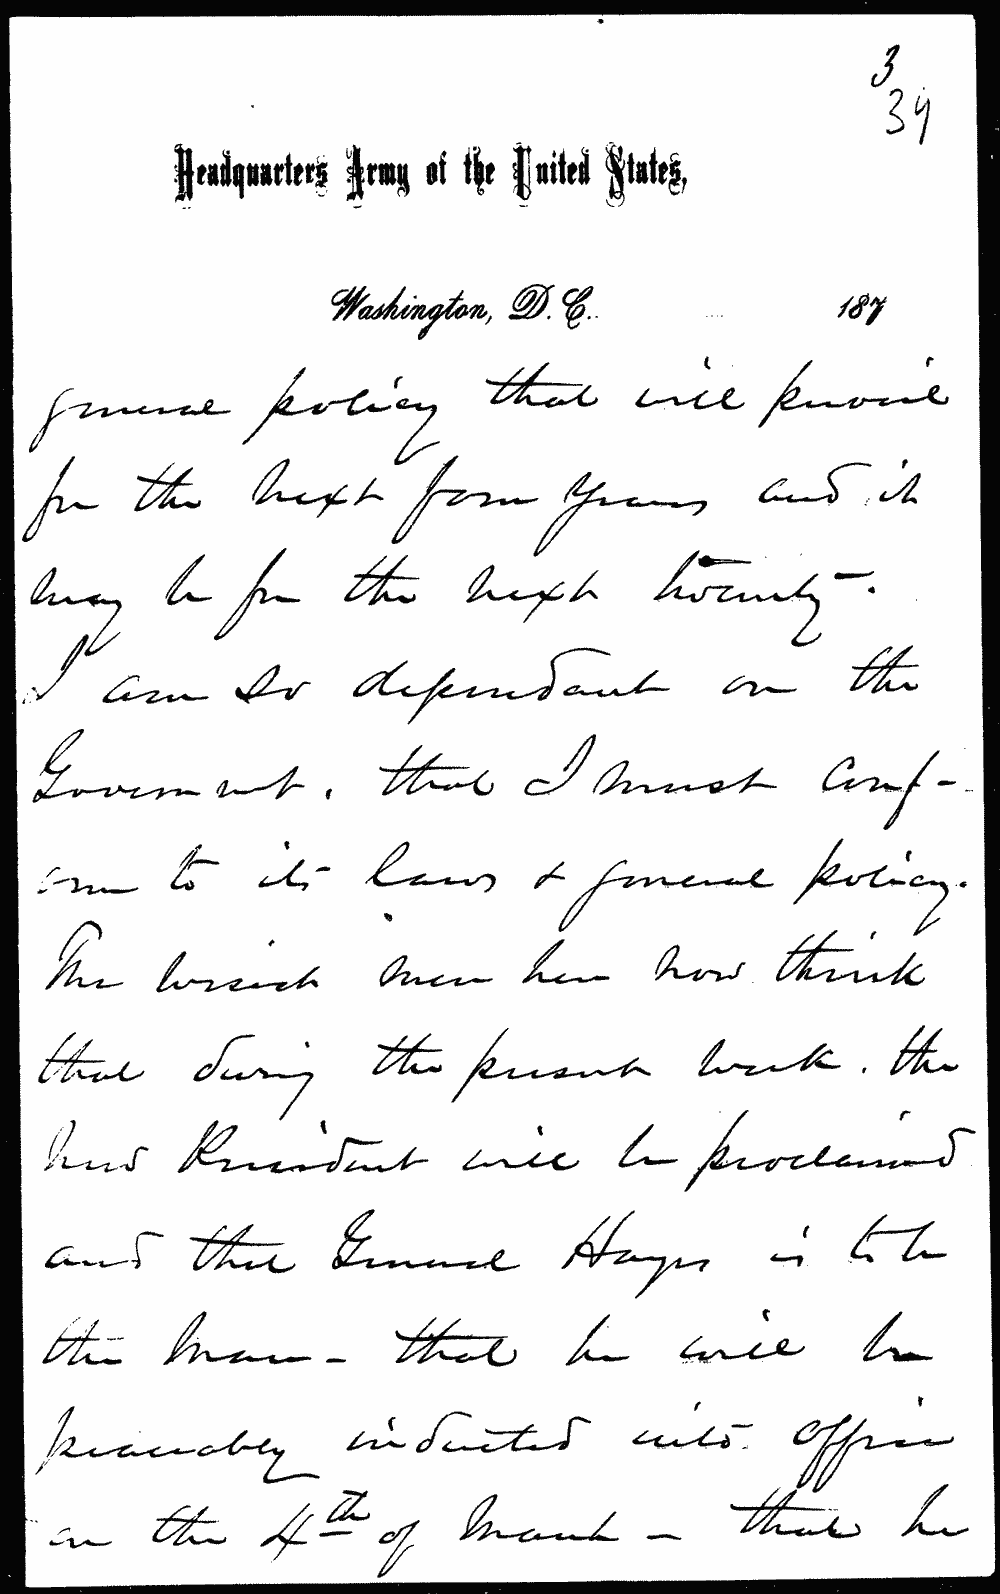 3
34
Headquarters Army of the United States,
Washington, D. C. 187
general policy that will prevail
for the next four years and it
may be for the next twenty.
I am so dependant on the
Government, that I must conf-
orm to its laws & general policy.
The wisest men here now think
that during the present week, the
new President will be proclaimed
and that General Hayes is to be
the man - that he will be
peaceably inducted into office
on the 4th of March - that he